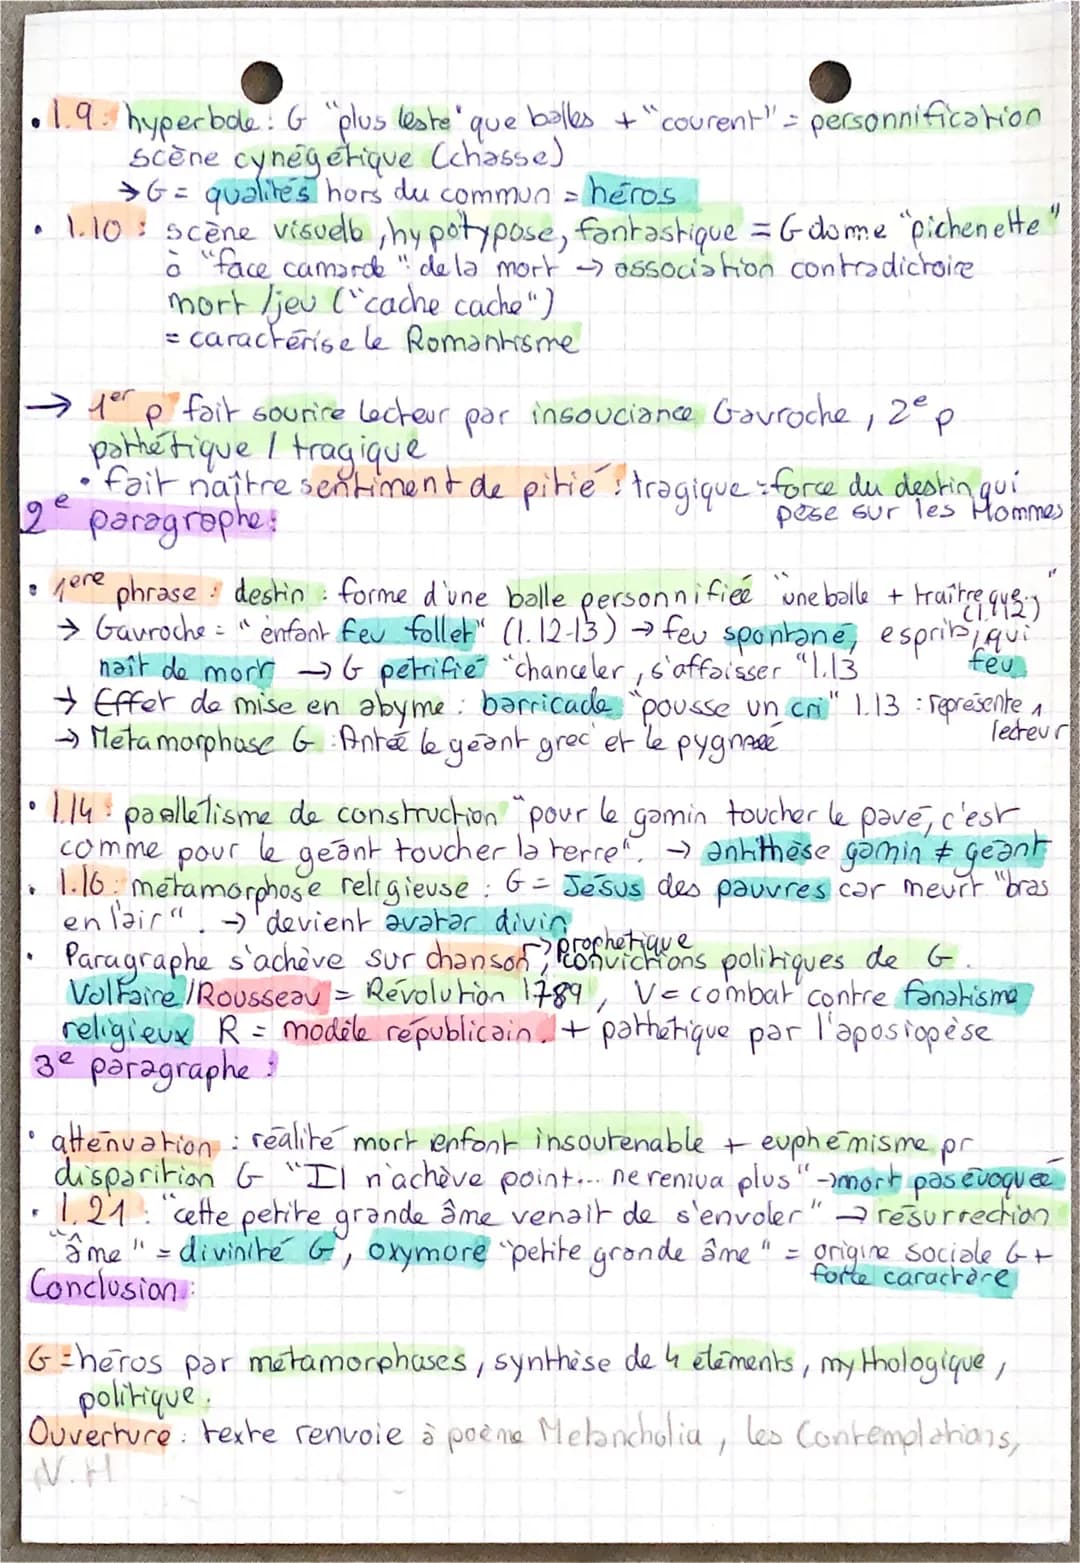 • l.9 : hyperbole : G "plus leste" que balles + "courent" = personnification
scène cynégétique (chasse)
→ G = qualités hors du commun = héros
• l.10 : scène visuelle, hypotypose, fantastique = G donne "pichenette"
à "face camarde" de la mort → association contradictoire
mort / jeu ("cache cache")
= caractérise le Romantisme
→ 1er p fait sourire lecteur par insouciance Gavroche, 2e p
pathétique / tragique
• fait naître sentiment de pitié : tragique = force du destin qui
pèse sur les Hommes
2e paragraphe :
• 1ere phrase : destin : forme d'une balle personnifiée "une balle + traître que..."
(l.12)
→ Gavroche = "enfant feu follet" (l.12-13) → feu spontané, esprits, qui
naît de mort → G pétrifié "chanceler, s'affaisser" l.13
feu
→ Effet de mise en abyme : barricade "pousse un cri" l.13 : représente
lecteur
→ Métamorphose G : Antée le géant grec et le pygmée
• l.14 : paallélisme de construction "pour le gamin toucher le pavé, c'est
comme pour le géant toucher la terre". → antithèse gamin ≠ géant
• l.16 : métamorphose religieuse : G = Jésus des pauvres car meurt "bras
en l'air". → devient avatar divin
→ prophétique
• Paragraphe s'achève sur chanson, convictions politiques de G.
Voltaire / Rousseau = Révolution 1789, V = combat contre fanatisme
religieux R = modèle républicain. + pathétique par l'aposiopèse
3e paragraphe :
• atténuation : réalité mort enfant insoutenable + euphémisme pr
disparition G "Il n'achève point... ne remua plus" → mort pas évoquée
• l.21 : "cette petite grande âme venait de s'envoler" → résurrection
"âme" = divinité G, oxymore "petite grande âme" = origine sociale G +
forte caractère
Conclusion :
G = héros par métamorphases, synthèse de 4 éléments, mythologique,
politique.
Ouverture : texte renvoie à poème Melancholia, les Contemplations,
V.H